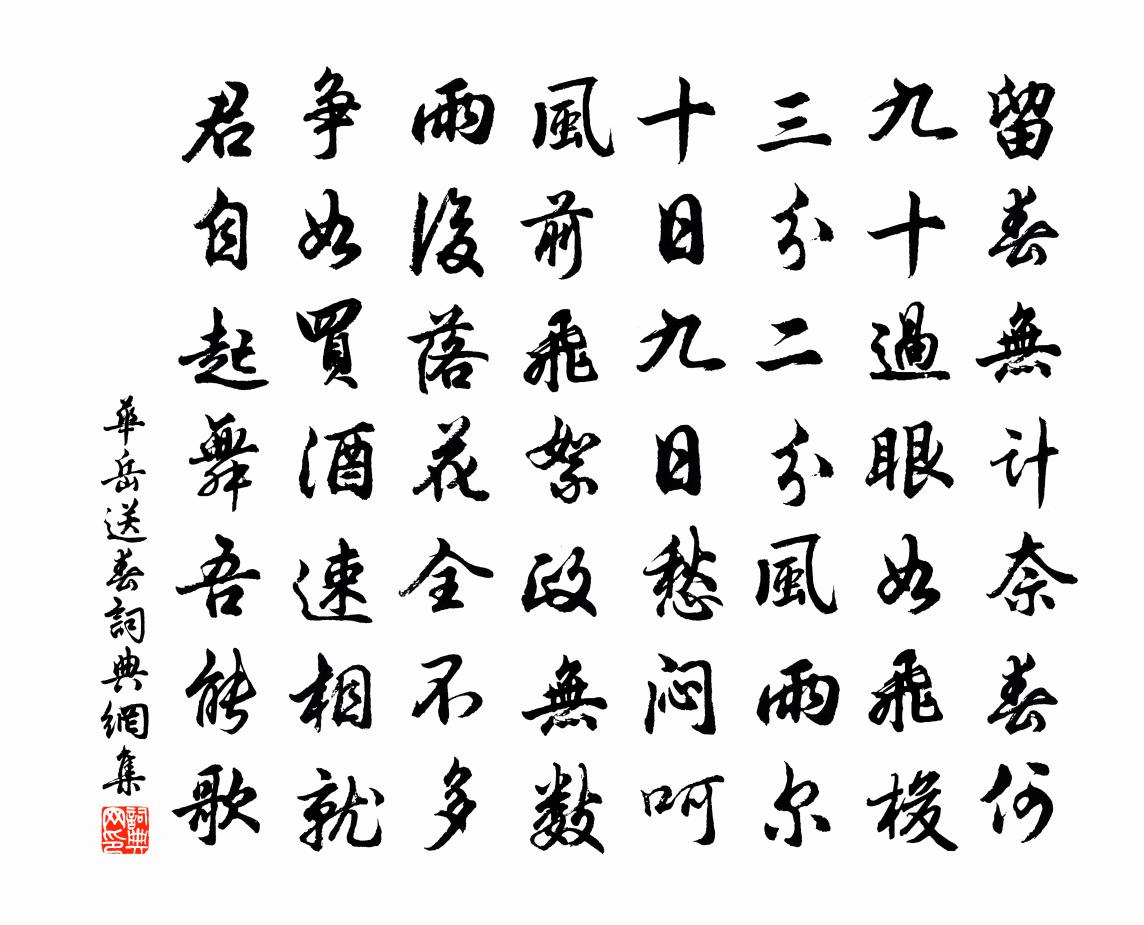 留春無計奈春何
九十過眼如飛梭
三分二分風雨尔
十日九日愁闷呵
風前飛絮政無数
雨後落花全不多
争如買酒速相就
君自起舞吾能歌
華岳送春詞典網集
詞典網印